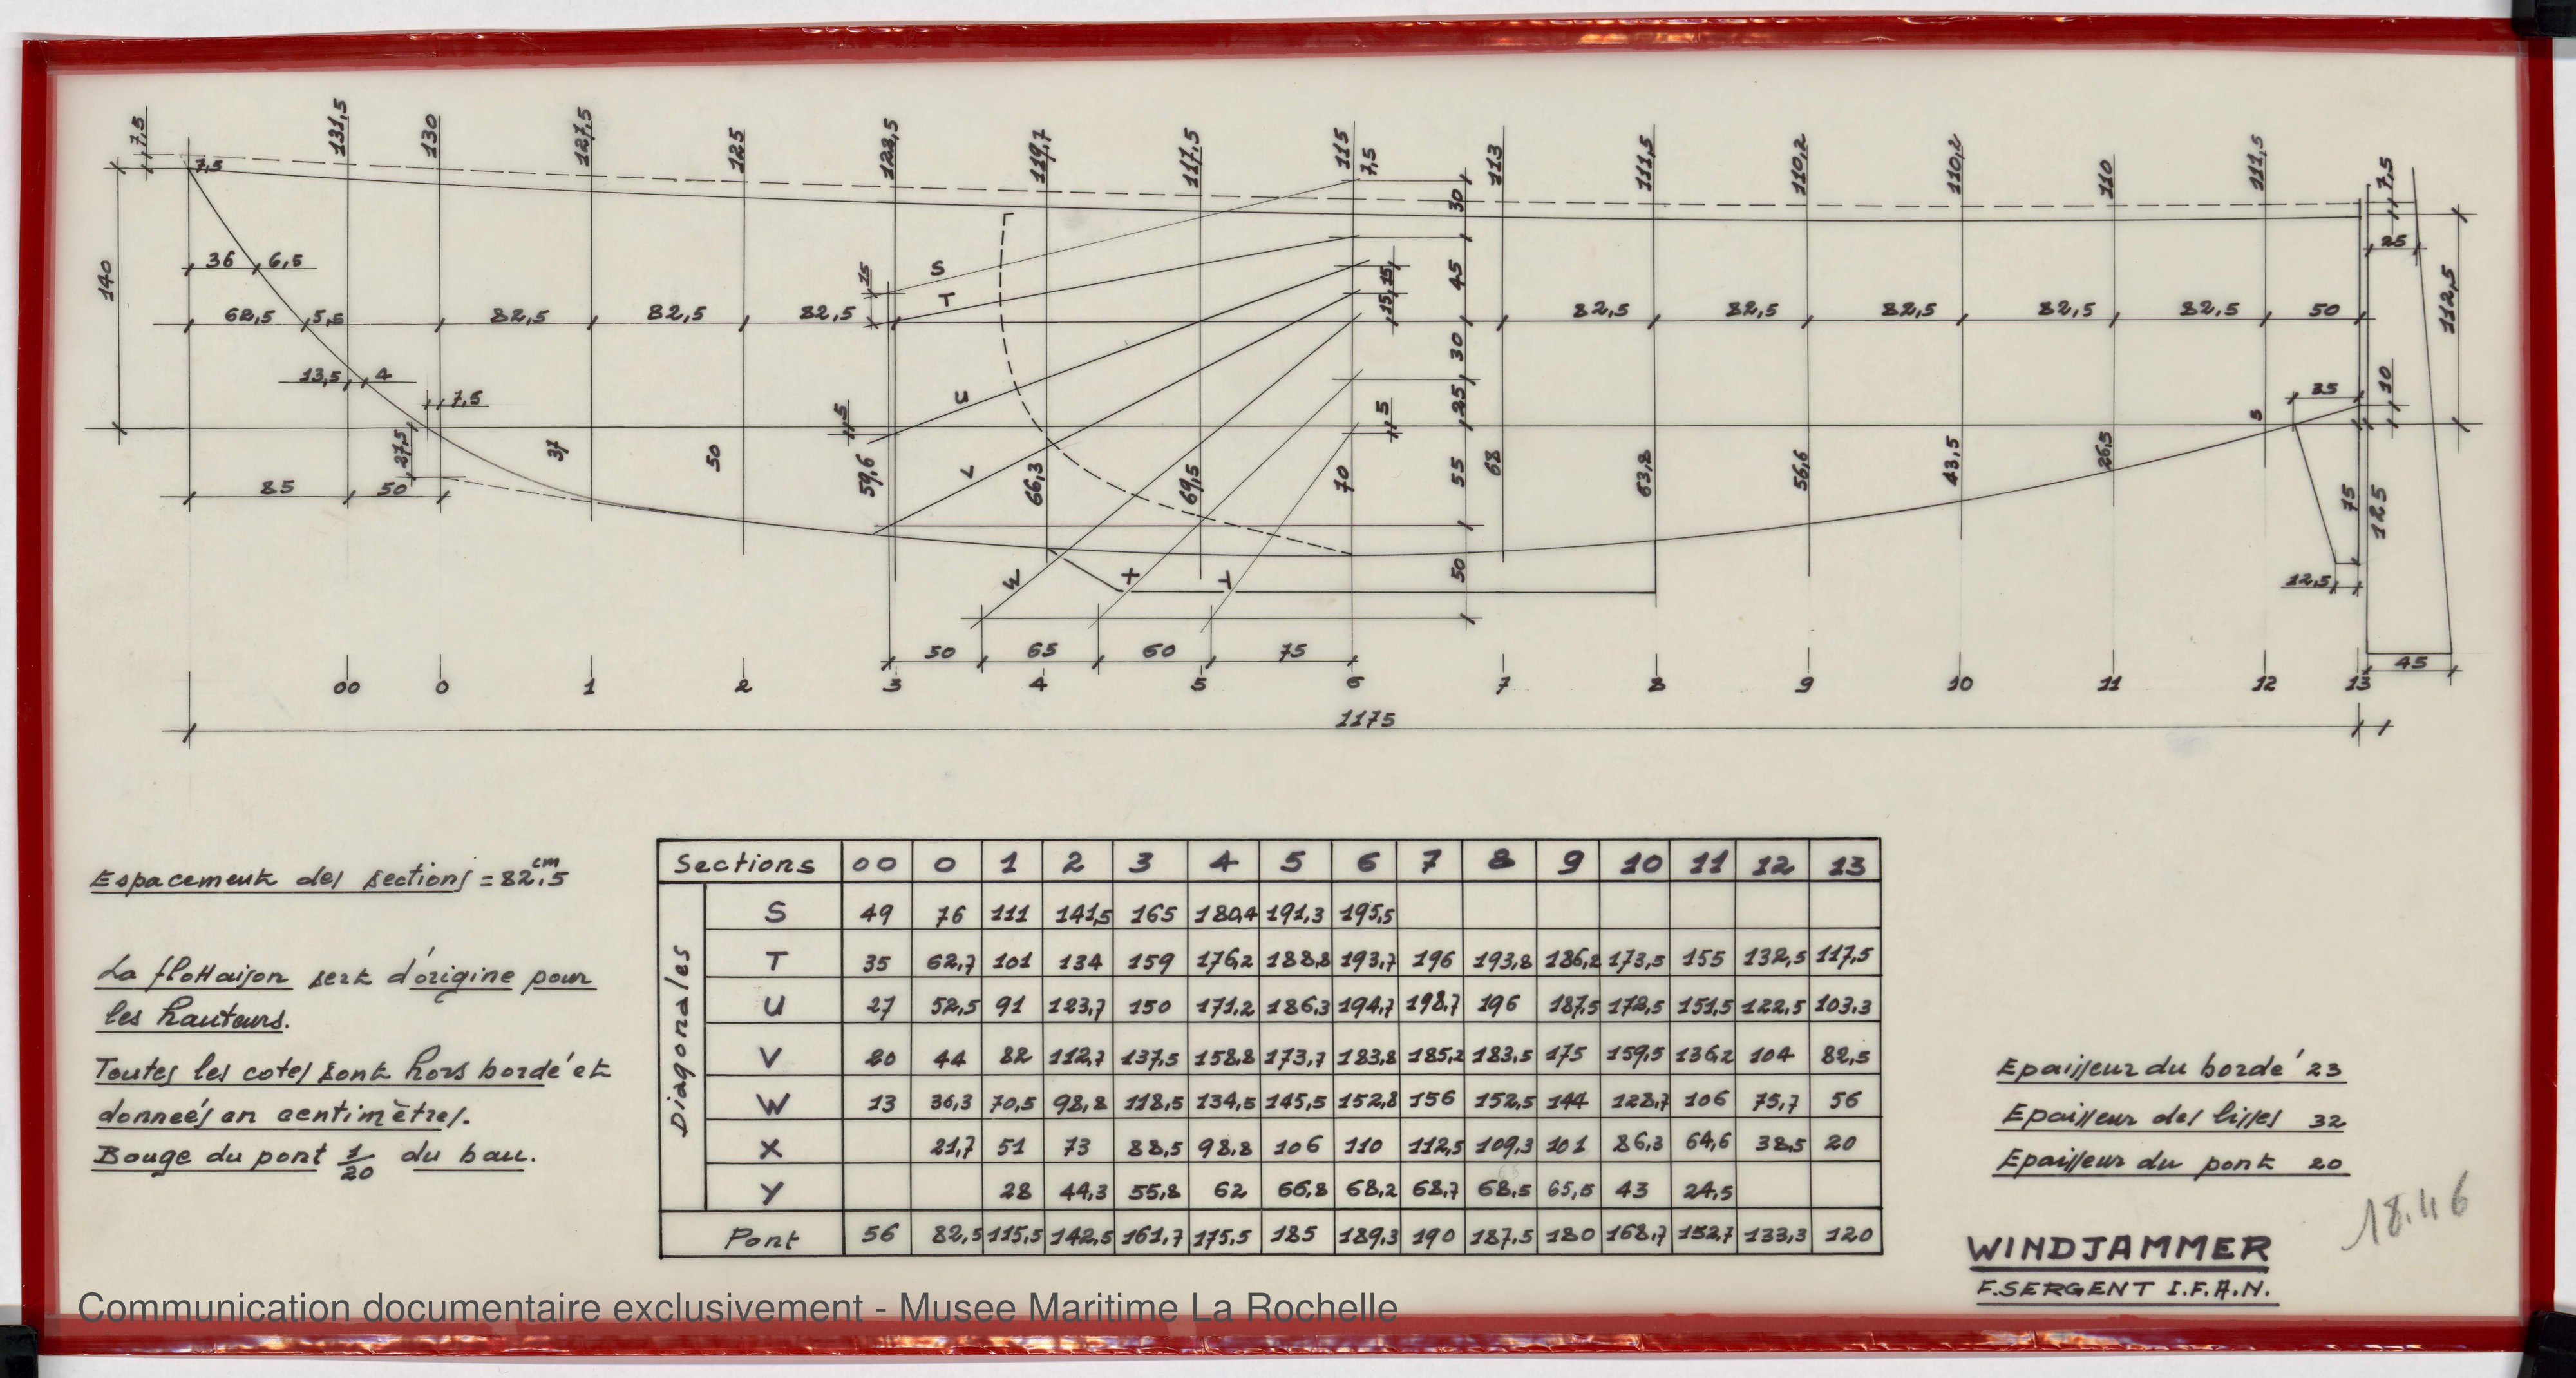 7,5 131,5 130 127,5 125 122,5 119,7 117,5 115 7,5 113 111,5 110,2 110,2 110 111,5 7,5
7,5 30
36 6,5 15 S 45 15 15 25
140 T 112,5
62,5 5,5 82,5 82,5 82,5 82,5 82,5 82,5 82,5 82,5 50
13,5 4 30 10
7,5 U 5 5 25 35
27,5 37 50 59,6 V 66,3 69,5 70 55 68 63,8 56,6 43,5 26,5 3
85 50 75 125
W X Y 50 12,5
50 65 60 75 45
00 0 1 2 3 4 5 6 7 8 9 10 11 12 13
1175
Espacement des sections = 82,5 cm
La flottaison sert d'origine pour
les hauteurs.
Toutes les cotes sont hors bordé et
donneés en centimètres.
Bouge du pont 1/20 du bau.
Sections 00 0 1 2 3 4 5 6 7 8 9 10 11 12 13
Diagonales
S 49 76 111 141,5 165 180,4 191,3 195,5
T 35 62,7 101 134 159 176,2 188,8 193,7 196 193,8 186,2 173,5 155 132,5 117,5
U 27 52,5 91 123,7 150 171,2 186,3 194,7 198,7 196 187,5 172,5 151,5 122,5 103,3
V 20 44 82 112,7 137,5 158,8 173,7 183,8 185,2 183,5 175 159,5 136,2 104 82,5
W 13 36,3 70,5 98,8 118,5 134,5 145,5 152,8 156 152,5 144 128,7 106 75,7 56
X 21,7 51 73 88,5 98,8 106 110 112,5 109,3 101 86,3 64,6 38,5 20
Y 28 44,3 55,8 62 66,8 68,2 68,7 68,5 65,5 43 24,5
Pont 56 82,5 115,5 142,5 161,7 175,5 185 189,3 190 187,5 180 168,7 152,7 133,3 120
Epaisseur du bordé 23
Epaisseur des lisses 32
Epaisseur du pont 20
WINDJAMMER
F.SERGENT I.F.A.N.
Communication documentaire exclusivement - Musee Maritime La Rochelle